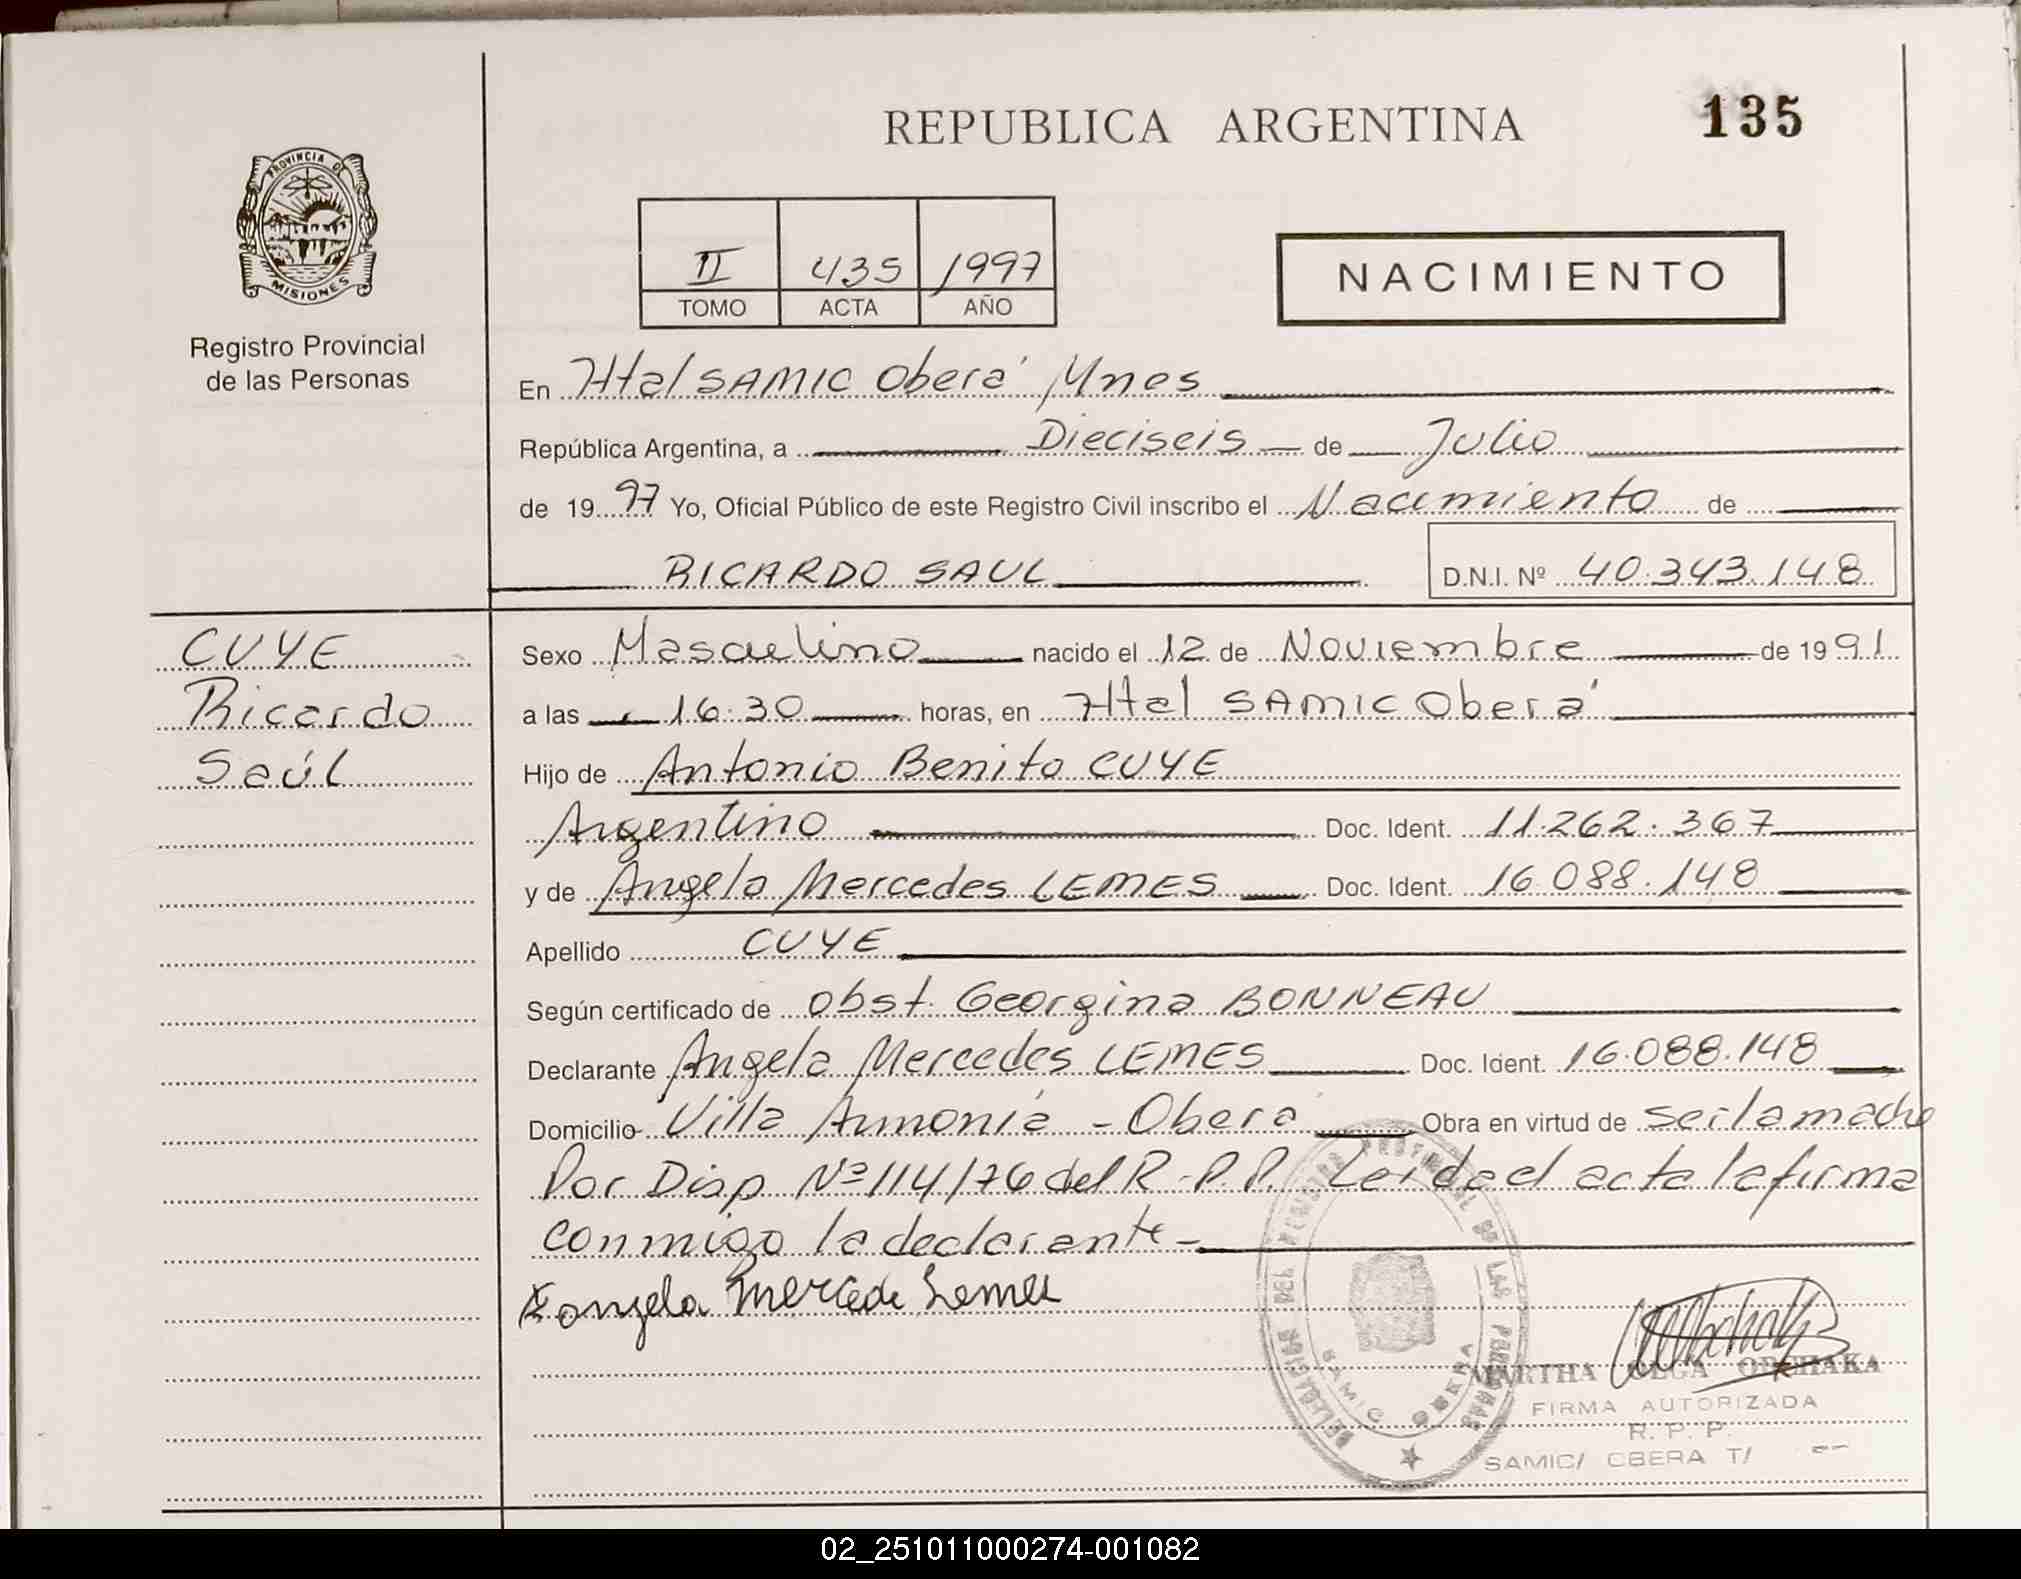 REPUBLICA ARGENTINA
135
PROVINCIA DE
MISIONES
Registro Provincial
de las Personas
II 435 1997
TOMO ACTA AÑO
NACIMIENTO
En Htal SAMIC Oberá Mnes
República Argentina, a Dieciseis de Julio
de 1997 Yo, Oficial Público de este Registro Civil inscribo el Nacimiento de
RICARDO SAUL D.N.I. Nº 40.343.148
CUYE
Ricardo
Saúl
Sexo Masculino nacido el 12 de Noviembre de 1991
a las 16:30 horas, en Htal SAMIC Oberá
Hijo de Antonio Benito CUYE
Argentino Doc. Ident. 11.262.367
y de Angela Mercedes LEMES Doc. Ident. 16.088.148
Apellido CUYE
Según certificado de obst. Georgina BONNEAU
Declarante Angela Mercedes LEMES Doc. Ident. 16.088.148
Domicilio Villa Armonía - Oberá Obra en virtud de ser la madre
Por Disp Nº 114/76 del R.P.P. Leida el acta la firma
conmigo la declarante -
angela Mercede Lemes
DELEGACION DEL REGISTRO PROVINCIAL DE LAS PERSONAS
SAMIC OBERA
MARTHA OLGA
FIRMA AUTORIZADA
R. P. P.
SAMIC/ OBERA T/
02_251011000274-001082